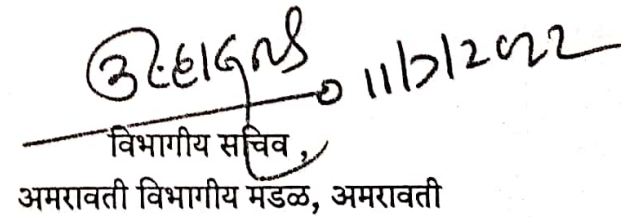 11/7/2022
विभागीय सचिव ,
अमरावती विभागीय मंडळ, अमरावती